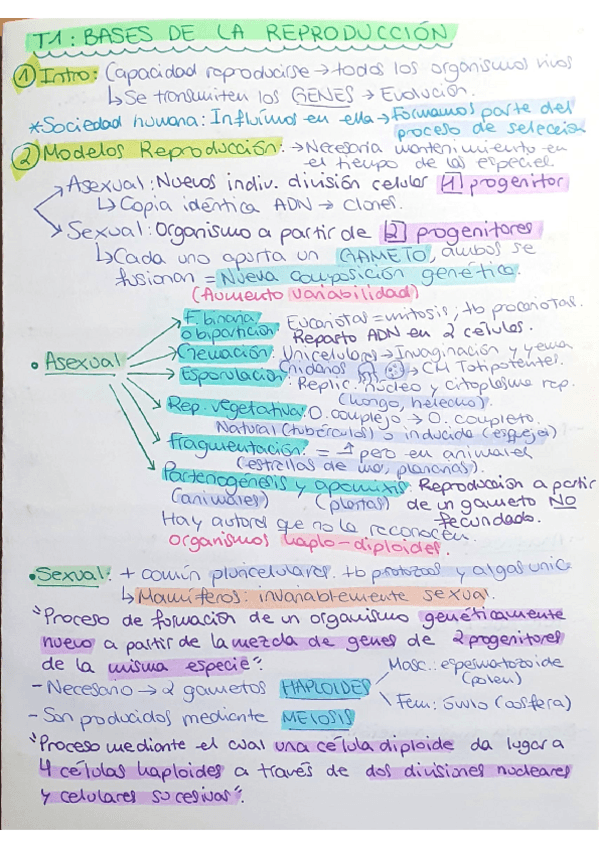 T1: BASES DE LA REPRODUCCIÓN
① Intro: Capacidad reproducirse → todos los organismos vivos
↳ Se transmiten los GENES → Evolución.
*Sociedad humana: Influímos en ella → Formamos parte del
proceso de selección
② Modelos Reproducción: → Necesaria mantenimiento en
el tiempo de las especies.
Asexual: Nuevos indiv. división celular 1 progenitor
↳ Copia identica ADN → Clones.
Sexual: Organismo a partir de 2 progenitores
↳ Cada uno aporta un GAMETO, ambos se
fusionan = Nueva composición genética.
(Aumento variabilidad)
• Asexual
F. binaria
o bipartición: Eucariotas = mitosis, tb procariotas.
Reparto ADN en 2 células.
Gemación: Unicelulares → Invaginación y yema
Cnidarios → CM Totipotentes.
Esporulación: Replic. núcleo y citoplasma rep.
(hongo, helecho).
Rep. vegetativa: O. complejo → O. completo.
Natural (tubérculos) o inducida (esqueje)
Fragmentación: = ↑ pero en animales
(estrellas de mar, planarias).
Partenogénesis y apomixis: Reproducción a partir
(animales) (plantas) de un gameto NO
fecundado.
Hay autores que no la reconocen.
organismos haplo-diploides.
• Sexual: + común pluricelulares. tb protozoos y algas unic
↳ Mamíferos: invariablemente sexual.
"Proceso de formación de un organismo genéticamente
nuevo a partir de la mezcla de genes de 2 progenitores
de la misma especie".
- Necesario → 2 gametos HAPLOIDES
Masc.: espermatozoide
(polen)
Fem: óvulo (oosfera)
- Son producidos mediante MEIOSIS
"Proceso mediante el cual una célula diploide da lugar a
4 células haploides a través de dos divisiones nucleares
y celulares sucesivas".